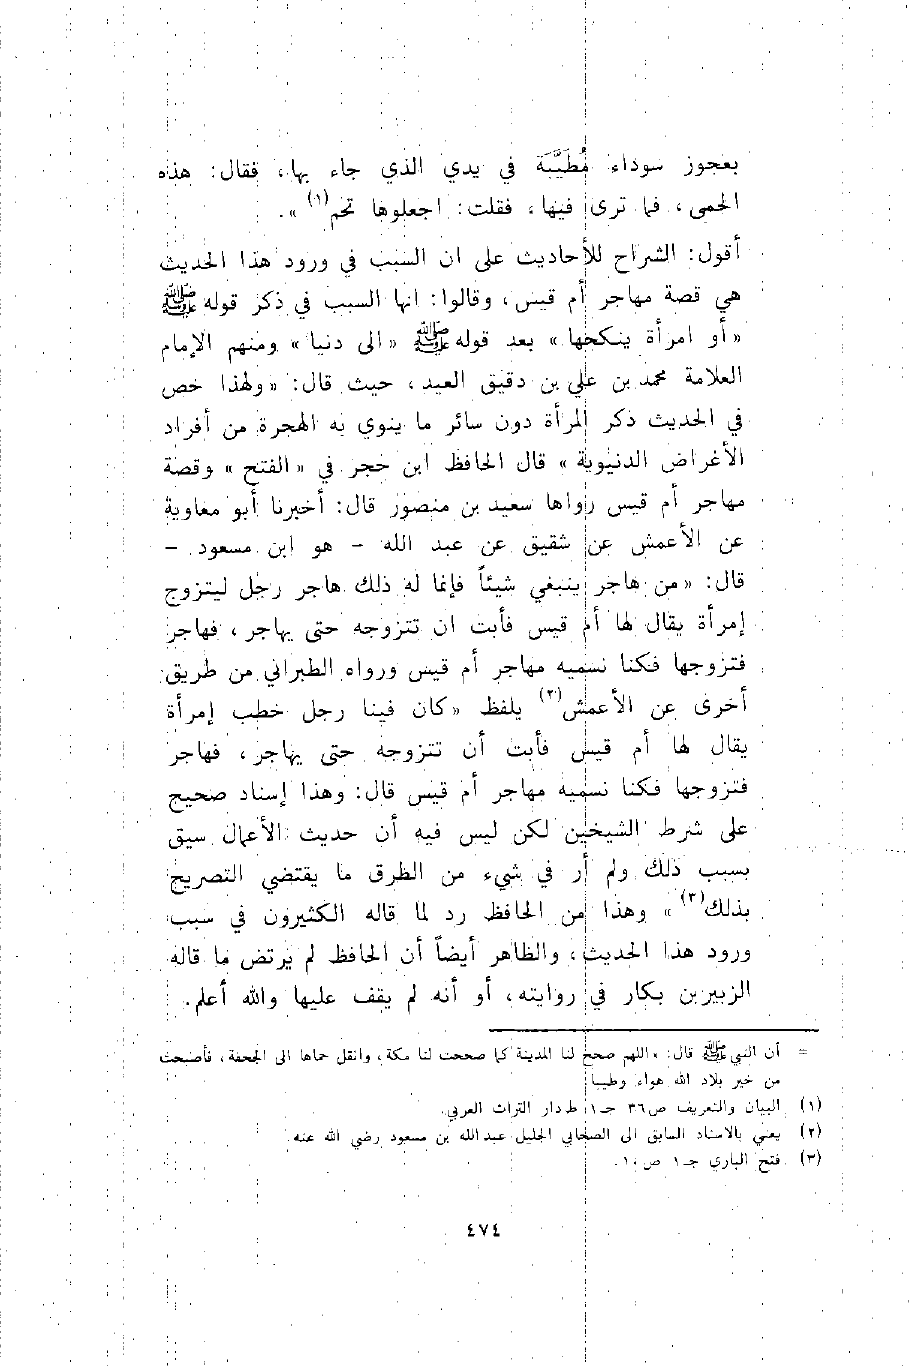 بعجوز سوداء مُطَيَّبَة في يدي الذي جاء بها، فقال: هذه
الحمى، فما ترى فيها، فقلت: اجعلوها تخم(١)».
أقول: الشراح للأحاديث على ان السبب في ورود هذا الحديث
هي قصة مهاجر أم قيس، وقالوا: انها السبب في ذكر قوله ﷺ
«أو امرأة ينكحها» بعد قوله ﷺ «الى دنيا» ومنهم الإمام
العلامة محمد بن علي بن دقيق العيد، حيث قال: «ولهذا خص
في الحديث ذكر المرأة دون سائر ما ينوي به الهجرة من أفراد
الأغراض الدنيوية» قال الحافظ ابن حجر في «الفتح» وقصة
مهاجر أم قيس رواها سعيد بن منصور قال: أخبرنا أبو معاوية
عن الأعمش عن شقيق عن عبد الله - هو ابن مسعود -
قال: «من هاجر ينبغي شيئاً فإنما له ذلك هاجر رجل ليتزوج
إمرأة يقال لها أم قيس فأبت ان تتزوجه حتى يهاجر، فهاجر
فتزوجها فكنا نسميه مهاجر أم قيس ورواه الطبراني من طريق
أخرى عن الأعمش(٢) يلفظ «كان فينا رجل خطب إمرأة
يقال لها أم قيس فأبت أن تتزوجه حتى يهاجر، فهاجر
فتزوجها فكنا نسميه مهاجر أم قيس قال: وهذا إسناد صحيح
على شرط الشيخين لكن ليس فيه أن حديث الأعمال سيق
بسبب ذلك ولم أر في شيء من الطرق ما يقتضي التصريح
بذلك(٣)» وهذا من الحافظ رد لما قاله الكثيرون في سبب
ورود هذا الحديث، والظاهر أيضاً أن الحافظ لم يرتض ما قاله
الزبير بن بكار في روايته، أو أنه لم يقف عليها والله أعلم.
= أن النبي ﷺ قال: «اللهم صحح لنا المدينة كما صححت لنا مكة، وانقل حماها الى الجحفة، فأصبحت
من خير بلاد الله هواء وطيبا
(١) البيان والتعريف ص٣٦ جـ١ ط دار التراث العربي.
(٢) يعني بالاسناد السابق الى الصحابي الجليل عبد الله بن مسعود رضي الله عنه.
(٣) فتح الباري جـ١ ص١٠.
٤٧٤